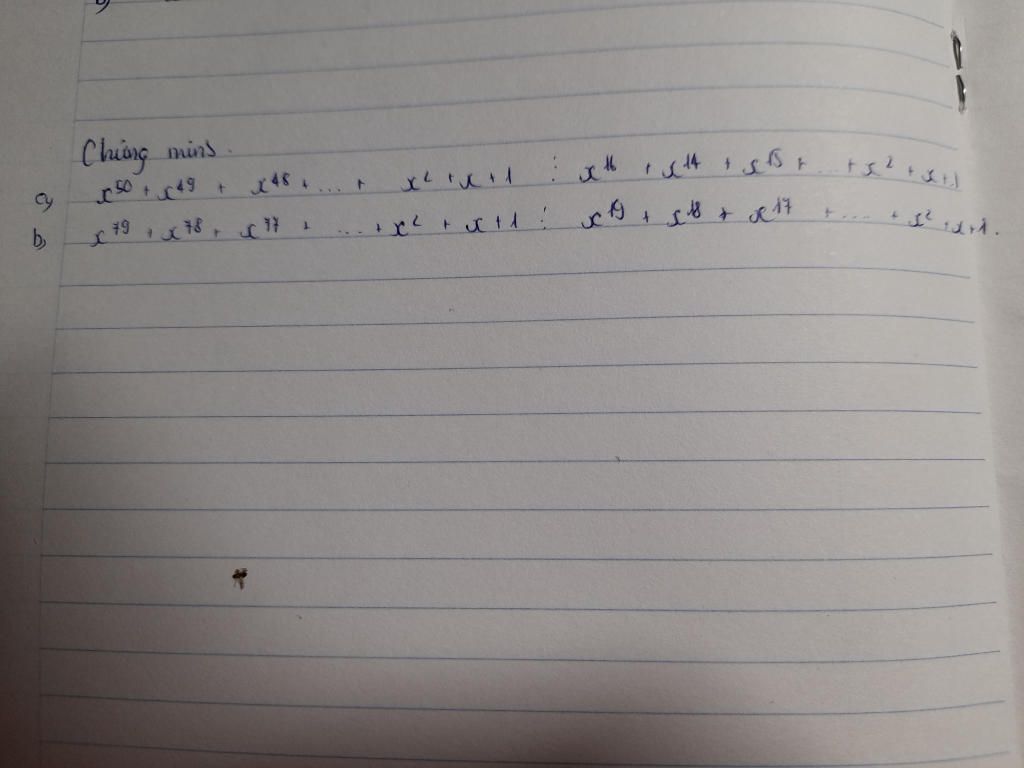 Chứng minh.
a, x⁵⁰ + x⁴⁹ + x⁴⁸ + ... + x² + x + 1 ⋮ x¹⁶ + x¹⁴ + x¹⁵ + ... + x² + x + 1
b, x⁷⁹ + x⁷⁸ + x⁷⁷ + ... + x² + x + 1 ⋮ x¹⁹ + x¹⁸ + x¹⁷ + .... + x² + x + 1.